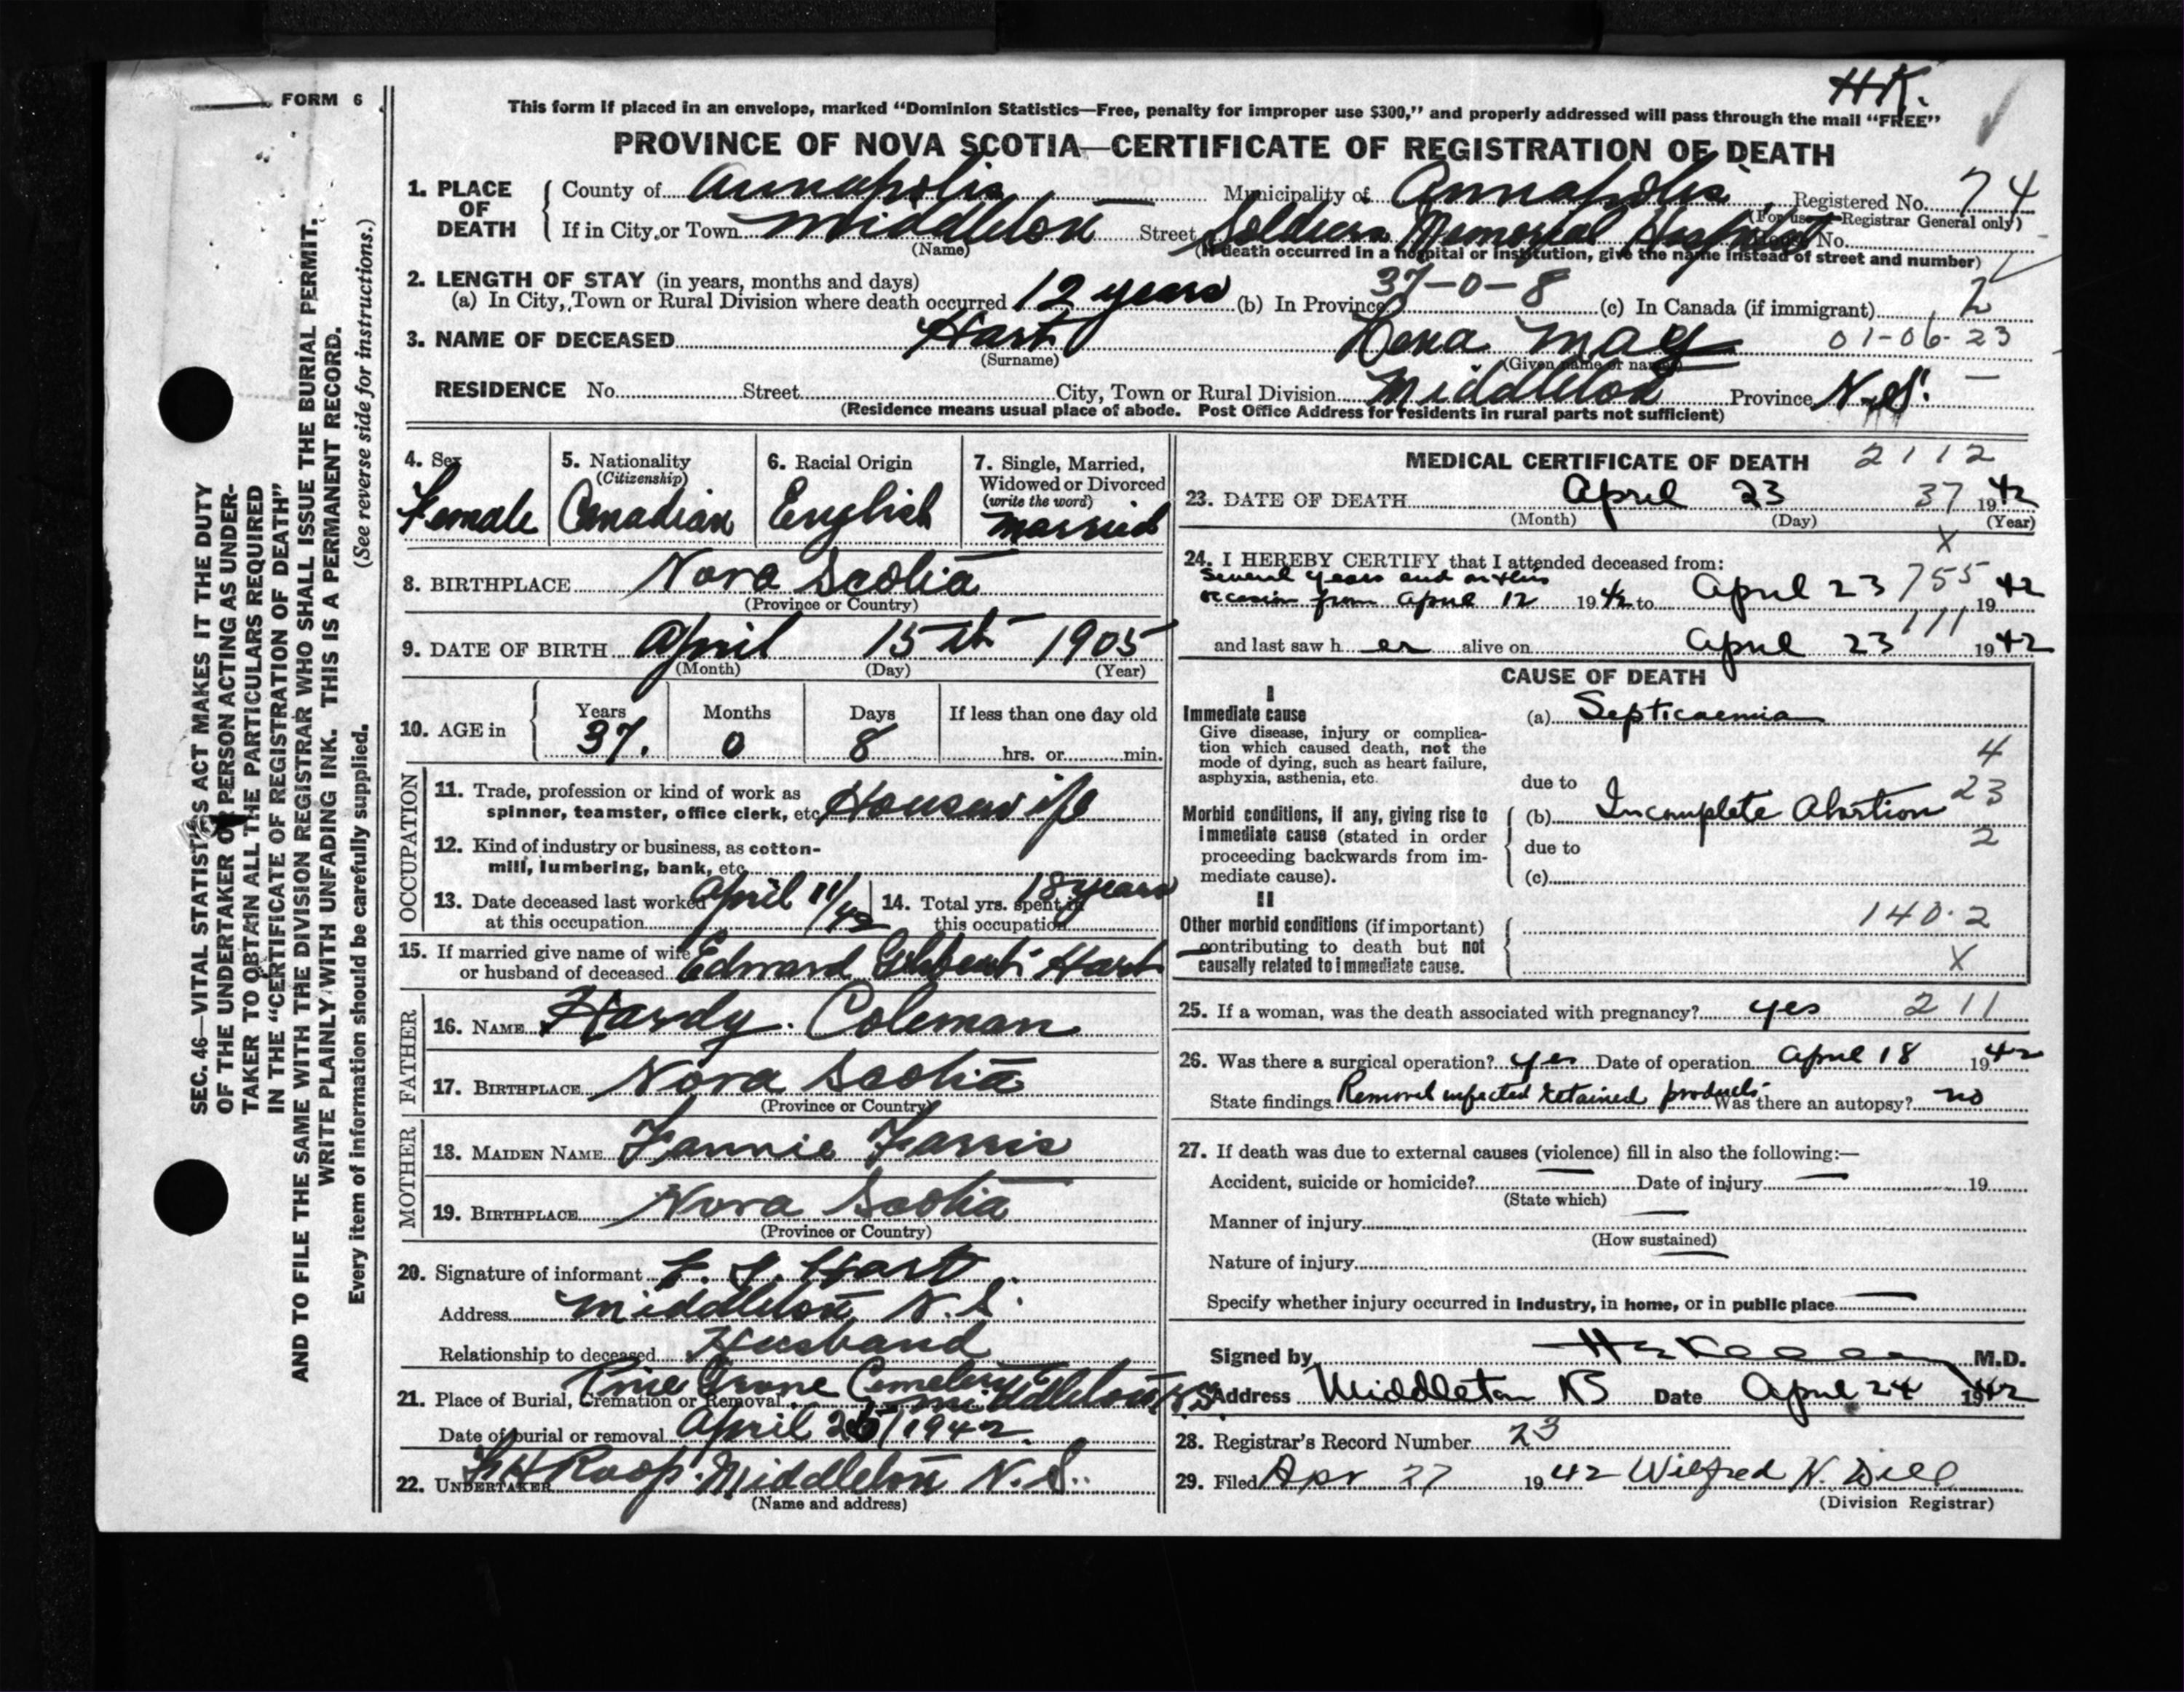 HK.
FORM 6
This form if placed in an envelope, marked “Dominion Statistics—Free, penalty for improper use $300,” and properly addressed will pass through the mail “FREE”
PROVINCE OF NOVA SCOTIA—CERTIFICATE OF REGISTRATION OF DEATH
1. PLACE OF DEATH
County of Annapolis Municipality of Annapolis Registered No. 74
(For use of Registrar General only)
If in City or Town Middleton Street Soldiers Memorial Hospital No.
(Name) (If death occurred in a hospital or institution, give the name instead of street and number)
2. LENGTH OF STAY (in years, months and days)
(a) In City, Town or Rural Division where death occurred 12 years (b) In Province 37-0-8 (c) In Canada (if immigrant) 2
3. NAME OF DECEASED Hart May 01-06-23
(Surname) (Given name or names)
RESIDENCE No. Street City, Town or Rural Division Middleton Province N.S.
(Residence means usual place of abode. Post Office Address for residents in rural parts not sufficient)
4. Sex Female
5. Nationality (Citizenship) Canadian
6. Racial Origin English
7. Single, Married, Widowed or Divorced (write the word) Married
8. BIRTHPLACE Nova Scotia
(Province or Country)
9. DATE OF BIRTH April 15th 1905
(Month) (Day) (Year)
10. AGE in Years 37. Months 0 Days 8 If less than one day old hrs. or min.
OCCUPATION
11. Trade, profession or kind of work as spinner, teamster, office clerk, etc. Housewife
12. Kind of industry or business, as cotton-mill, lumbering, bank, etc.
13. Date deceased last worked at this occupation April 11/42
14. Total yrs. spent in this occupation 18 years
15. If married give name of wife or husband of deceased Edward Hart
FATHER
16. NAME Hardy. Coleman
17. BIRTHPLACE Nova Scotia
(Province or Country)
MOTHER
18. MAIDEN NAME Fannie Farris
19. BIRTHPLACE Nova Scotia
(Province or Country)
20. Signature of informant Hart
Address Middleton N.S.
Relationship to deceased Husband
21. Place of Burial, Cremation or Removal Pine Grove Cemetery Middleton N.S.
Date of burial or removal April 1942
22. UNDERTAKER Roop. Middleton N.S.
(Name and address)
MEDICAL CERTIFICATE OF DEATH 2112
23. DATE OF DEATH April 23 37 1942
(Month) (Day) (Year)
X
24. I HEREBY CERTIFY that I attended deceased from:
Several years and on this
occasion from April 12 1942 to April 23 755 1942
111
and last saw her alive on April 23 1942
CAUSE OF DEATH
I
Immediate cause
Give disease, injury or complication which caused death, not the mode of dying, such as heart failure, asphyxia, asthenia, etc.
(a) Septicaemia
4
due to
23
Morbid conditions, if any, giving rise to immediate cause (stated in order proceeding backwards from immediate cause).
(b) Incomplete Abortion
2
due to
(c)
II
Other morbid conditions (if important) contributing to death but not causally related to immediate cause.
140.2
X
25. If a woman, was the death associated with pregnancy? yes 211
26. Was there a surgical operation? yes Date of operation April 18 1942
State findings Removed infected retained products Was there an autopsy? no
27. If death was due to external causes (violence) fill in also the following:—
Accident, suicide or homicide? Date of injury 19
(State which)
Manner of injury
(How sustained)
Nature of injury
Specify whether injury occurred in industry, in home, or in public place
Signed by M.D.
Address Middleton NS Date April 24 1942
28. Registrar's Record Number 23
29. Filed Apr 27 1942 Wilfred
(Division Registrar)
SEC. 46—VITAL STATISTICS ACT MAKES IT THE DUTY
OF THE UNDERTAKER OR PERSON ACTING AS UNDER-
TAKER TO OBTAIN ALL THE PARTICULARS REQUIRED
IN THE “CERTIFICATE OF REGISTRATION OF DEATH”
AND TO FILE THE SAME WITH THE DIVISION REGISTRAR WHO SHALL ISSUE THE BURIAL PERMIT.
WRITE PLAINLY WITH UNFADING INK. THIS IS A PERMANENT RECORD.
Every item of information should be carefully supplied. (See reverse side for instructions.)